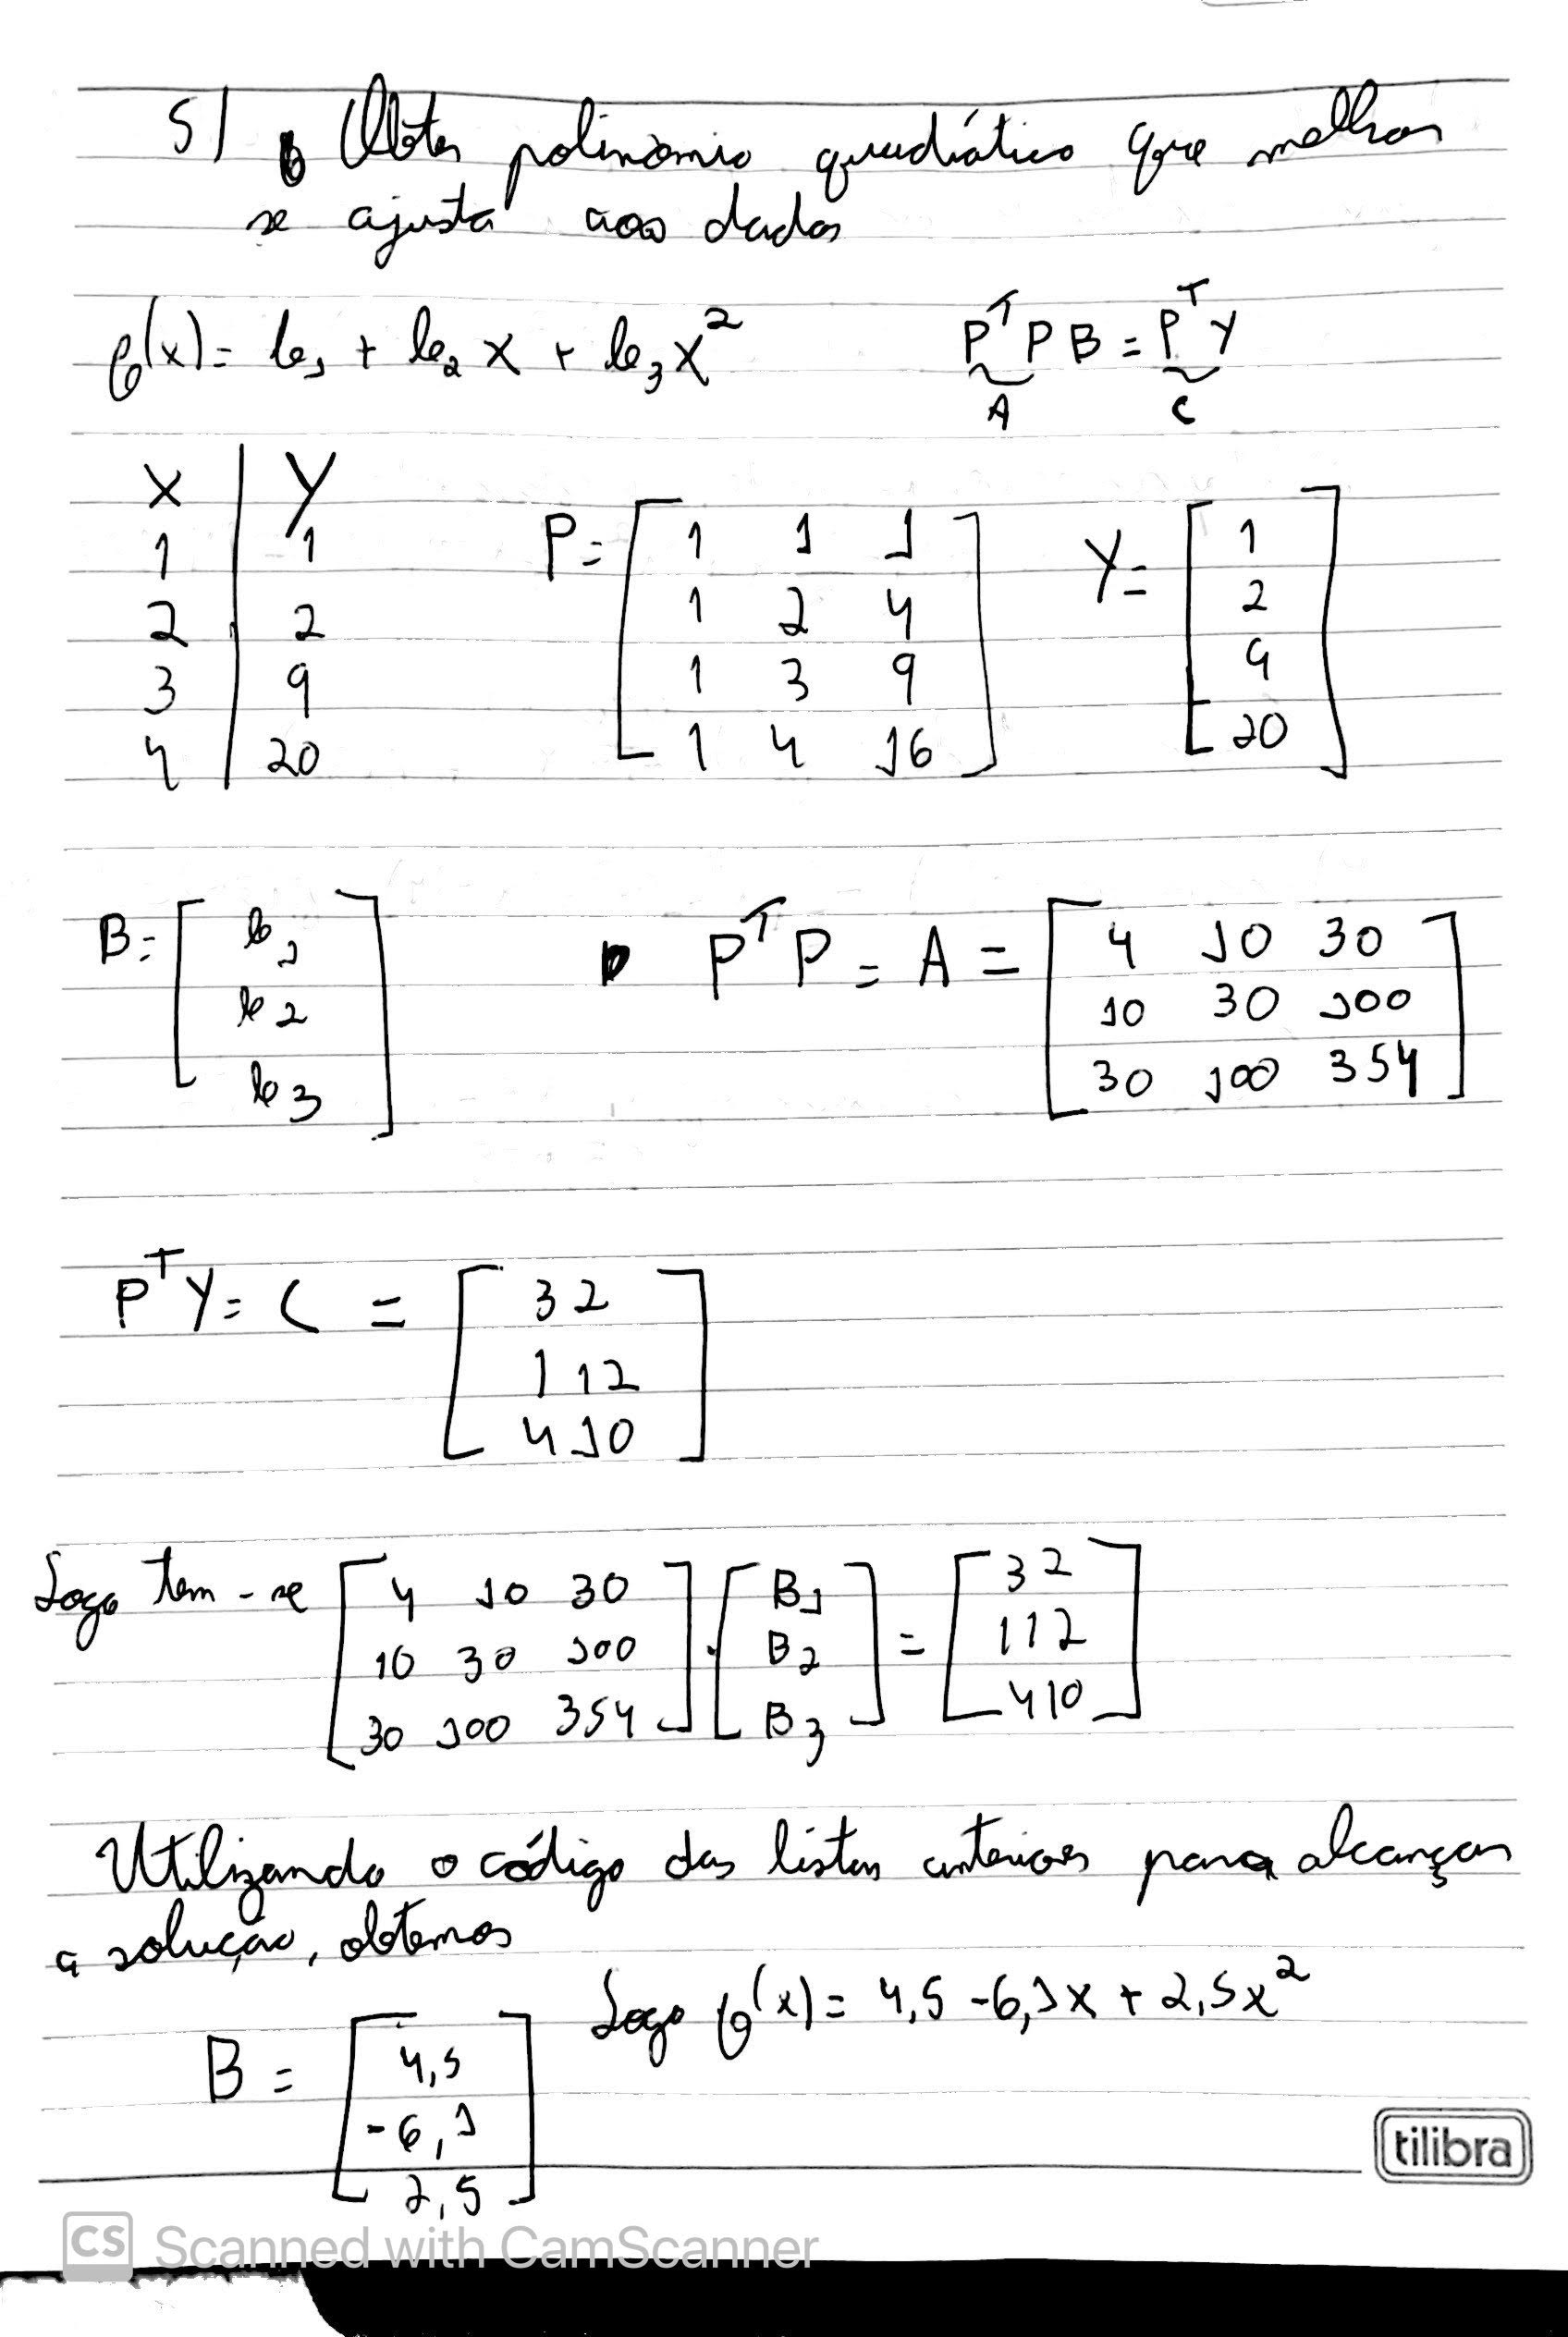 5) Obter polinômio quadrático que melhor
se ajusta aos dados
φ(x) = b₁ + b₂ x + b₃ x²
PᵀP B = PᵀY
A C
X | Y
1 | 1
2 | 2
3 | 9
4 | 20
P = [ 1 1 1
1 2 4
1 3 9
1 4 16 ]
Y = [ 1
2
9
20 ]
B = [ b₁
b₂
b₃ ]
PᵀP = A = [ 4 10 30
10 30 100
30 100 354 ]
PᵀY = C = [ 32
112
410 ]
Logo tem-se [ 4 10 30
10 30 100
30 100 354 ] . [ B₁
B₂
B₃ ] = [ 32
112
410 ]
Utilizando o código das listas anteriores para alcançar
a solução, obtemos
B = [ 4,5
-6,1
2,5 ]
Logo φ(x) = 4,5 -6,1x + 2,5x²
tilibra
CS Scanned with CamScanner